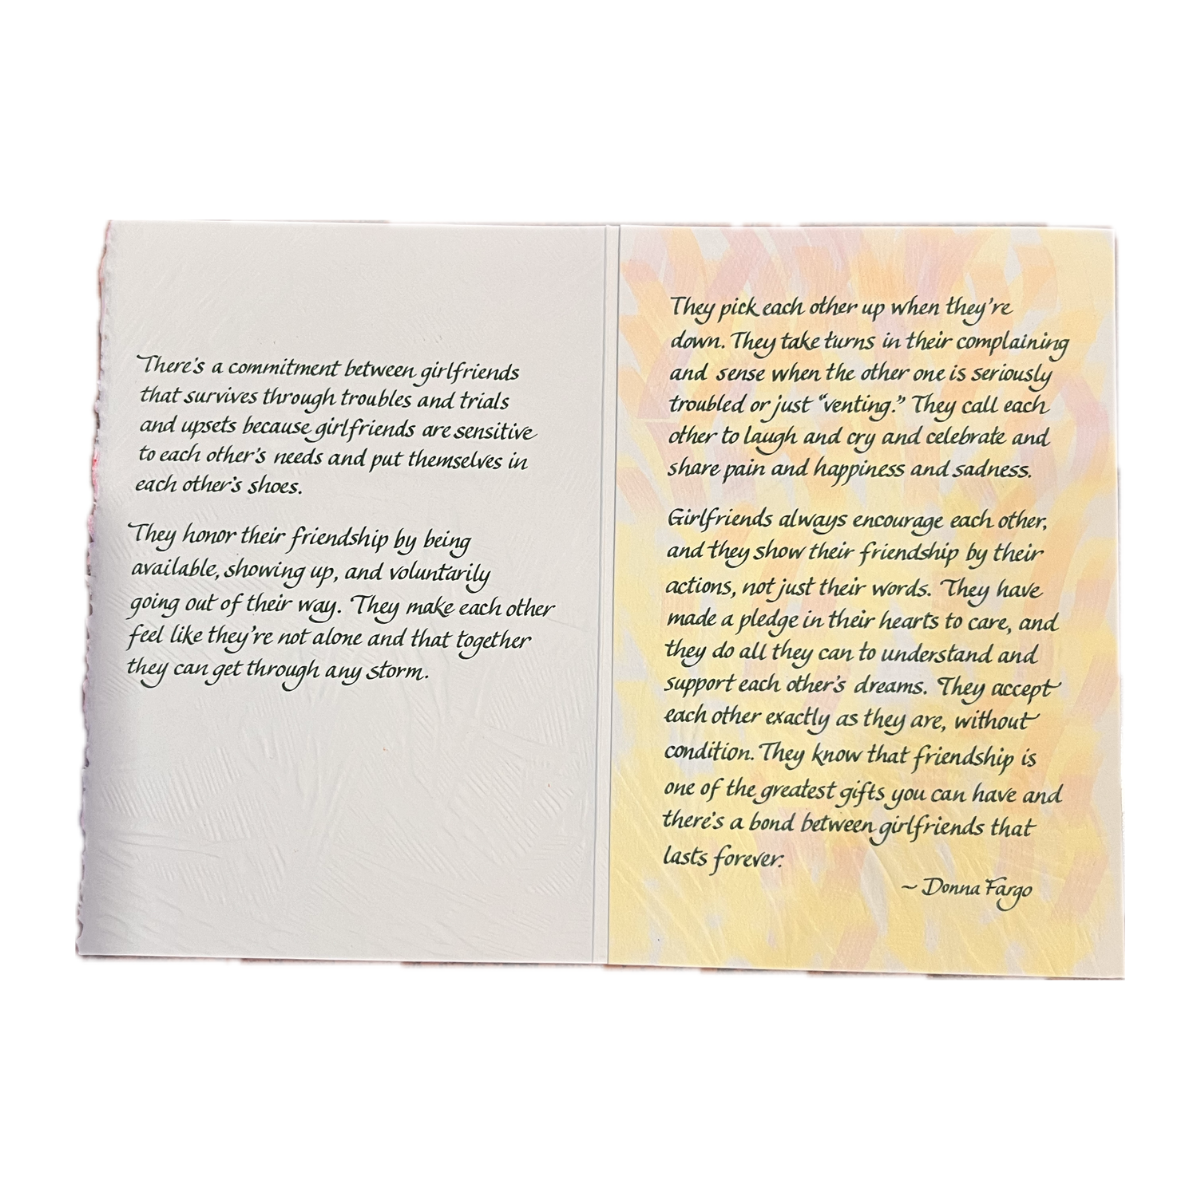 There's a commitment between girlfriends
that survives through troubles and trials
and upsets because girlfriends are sensitive
to each other's needs and put themselves in
each other's shoes.
They honor their friendship by being
available, showing up, and voluntarily
going out of their way. They make each other
feel like they're not alone and that together
they can get through any storm.
They pick each other up when they're
down. They take turns in their complaining
and sense when the other one is seriously
troubled or just “venting.” They call each
other to laugh and cry and celebrate and
share pain and happiness and sadness.
Girlfriends always encourage each other,
and they show their friendship by their
actions, not just their words. They have
made a pledge in their hearts to care, and
they do all they can to understand and
support each other's dreams. They accept
each other exactly as they are, without
condition. They know that friendship is
one of the greatest gifts you can have and
there's a bond between girlfriends that
lasts forever.
~ Donna Fargo